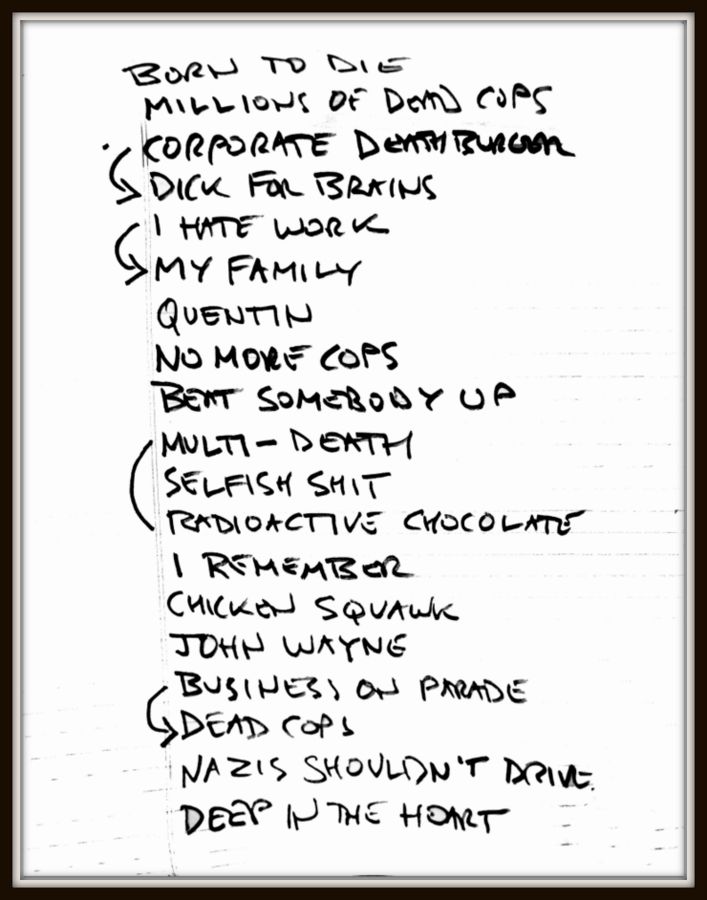 BORN TO DIE
MILLIONS OF DEAD COPS
CORPORATE DEATHBURGER
DICK FOR BRAINS
I HATE WORK
MY FAMILY
QUENTIN
NO MORE COPS
BEAT SOMEBODY UP
MULTI-DEATH
SELFISH SHIT
RADIOACTIVE CHOCOLATE
I REMEMBER
CHICKEN SQUAWK
JOHN WAYNE
BUSINESS ON PARADE
DEAD COPS
NAZIS SHOULDN'T DRIVE.
DEEP IN THE HEART